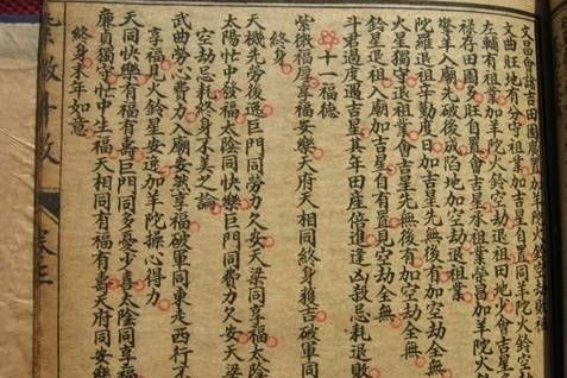 文昌會諸吉田園廣置加羊陀火鈴空劫敗祖
文曲旺地有分守祖業加吉星自置同羊陀火鈴空劫
左輔有祖業加羊陀火鈴空劫退祖田地少會吉星
祿存田園多旺自置會吉星承祖業榮昌加羊陀火鈴
擎羊入廟先破後成陷地加空劫退祖業
陀羅退祖辛勤度日加吉星先無後有加空劫全無
火星獨守退祖業會吉星先無後有加空劫全無
鈴星退祖入廟加吉星自有置見空劫全無
斗君過度遇吉星其年田產倍進逢凶殺忌耗退敗
十一福德
紫微福厚享福安樂天府天相同終身獲吉破軍同
終身
天機先勞後逸巨門同勞力久安天梁同享福太陰
太陽忙中發福太陰同快樂巨門同費力久安天梁
空劫忌耗終身不美之論
武曲勞心費力入廟安然享福破軍同東走西行不
享福見火鈴星安逸加羊陀操心得力
天同快樂有福有壽巨門同多憂少喜太陰同享福
廉貞獨守忙中生福天相同有福有壽天府同安樂
終身末年如意
紫微斗數 卷三